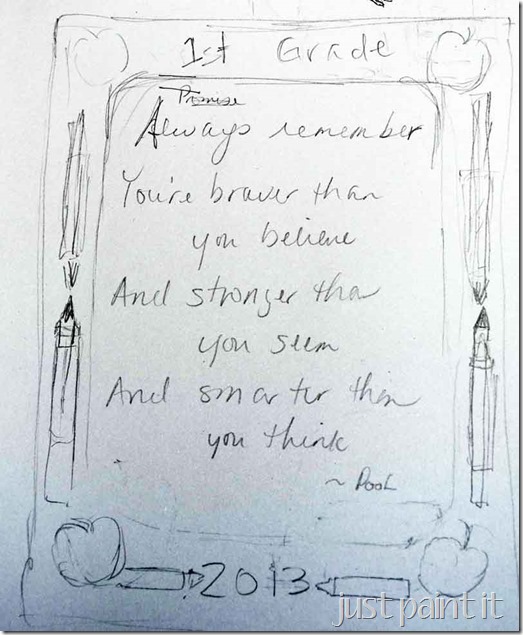 1st Grade
Promise
Always remember
You're braver than
you believe
And stronger than
you seem
And smarter than
you think
~ Pooh
2013
just paint it